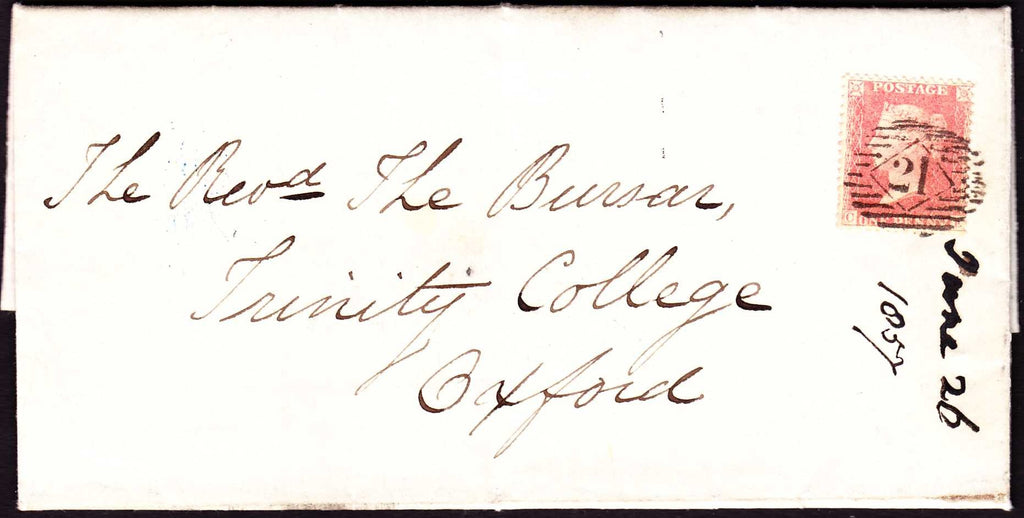 POSTAGE
21
C
ONE PENNY
The Revd The Bursar,
Trinity College
Oxford
June 26
1857